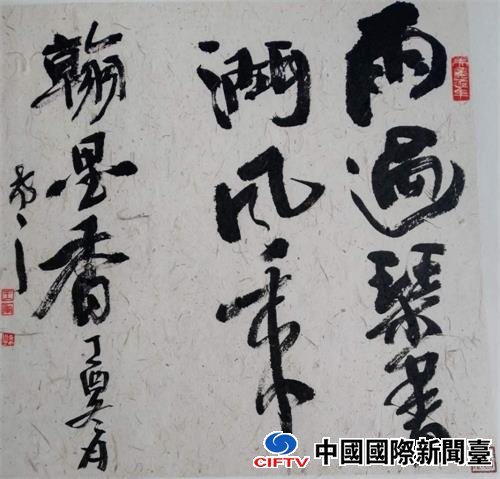 雨過琴書
潤风來
翰墨香丁酉冬月
CIFTV
中國國際新聞臺